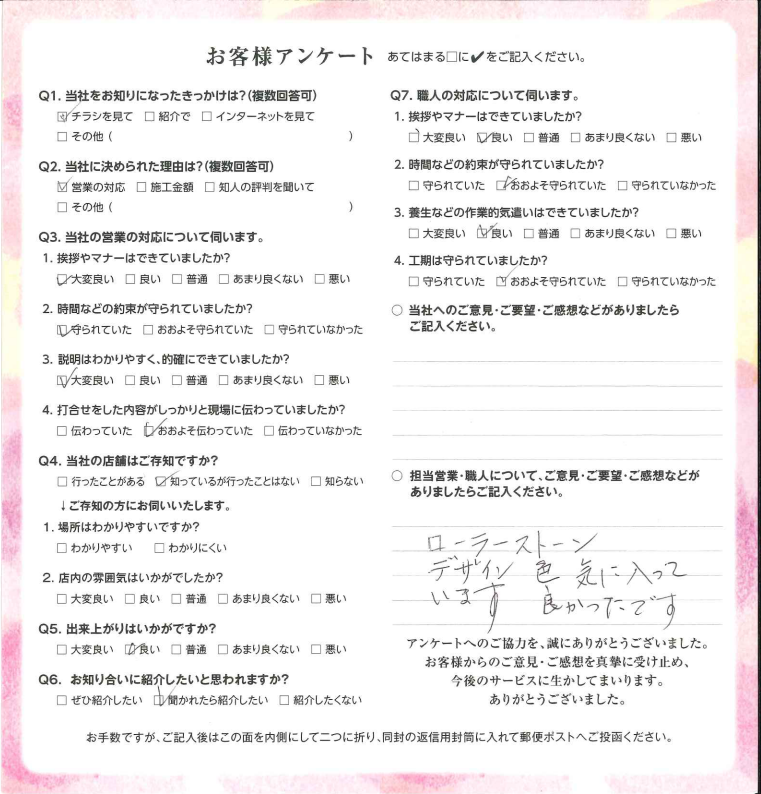 お客様アンケート あてはまる□に✔をご記入ください。
Q1. 当社をお知りになったきっかけは?(複数回答可)
☑ チラシを見て □ 紹介で □ インターネットを見て
□ その他 ( )
Q2. 当社に決められた理由は?(複数回答可)
☑ 営業の対応 □ 施工金額 □ 知人の評判を聞いて
□ その他 ( )
Q3. 当社の営業の対応について伺います。
1. 挨拶やマナーはできていましたか?
☑ 大変良い □ 良い □ 普通 □ あまり良くない □ 悪い
2. 時間などの約束が守られていましたか?
☑ 守られていた □ おおよそ守られていた □ 守られていなかった
3. 説明はわかりやすく、的確にできていましたか?
☑ 大変良い □ 良い □ 普通 □ あまり良くない □ 悪い
4. 打合せをした内容がしっかりと現場に伝わっていましたか?
□ 伝わっていた ☑ おおよそ伝わっていた □ 伝わっていなかった
Q4. 当社の店舗はご存知ですか?
□ 行ったことがある ☑ 知っているが行ったことはない □ 知らない
↓ご存知の方にお伺いいたします。
1. 場所はわかりやすいですか?
□ わかりやすい □ わかりにくい
2. 店内の雰囲気はいかがでしたか?
□ 大変良い □ 良い □ 普通 □ あまり良くない □ 悪い
Q5. 出来上がりはいかがですか?
□ 大変良い ☑ 良い □ 普通 □ あまり良くない □ 悪い
Q6. お知り合いに紹介したいと思われますか?
□ ぜひ紹介したい ☑ 聞かれたら紹介したい □ 紹介したくない
Q7. 職人の対応について伺います。
1. 挨拶やマナーはできていましたか?
□ 大変良い ☑ 良い □ 普通 □ あまり良くない □ 悪い
2. 時間などの約束が守られていましたか?
□ 守られていた ☑ おおよそ守られていた □ 守られていなかった
3. 養生などの作業的気遣いはできていましたか?
□ 大変良い ☑ 良い □ 普通 □ あまり良くない □ 悪い
4. 工期は守られていましたか?
□ 守られていた ☑ おおよそ守られていた □ 守られていなかった
○ 当社へのご意見・ご要望・ご感想などがありましたら
ご記入ください。
○ 担当営業・職人について、ご意見・ご要望・ご感想などが
ありましたらご記入ください。
ローラーストーン
デザイン 色 気に入って
います 良かったです
アンケートへのご協力を、誠にありがとうございました。
お客様からのご意見・ご感想を真摯に受け止め、
今後のサービスに生かしてまいります。
ありがとうございました。
お手数ですが、ご記入後はこの面を内側にして二つに折り、同封の返信用封筒に入れて郵便ポストへご投函ください。